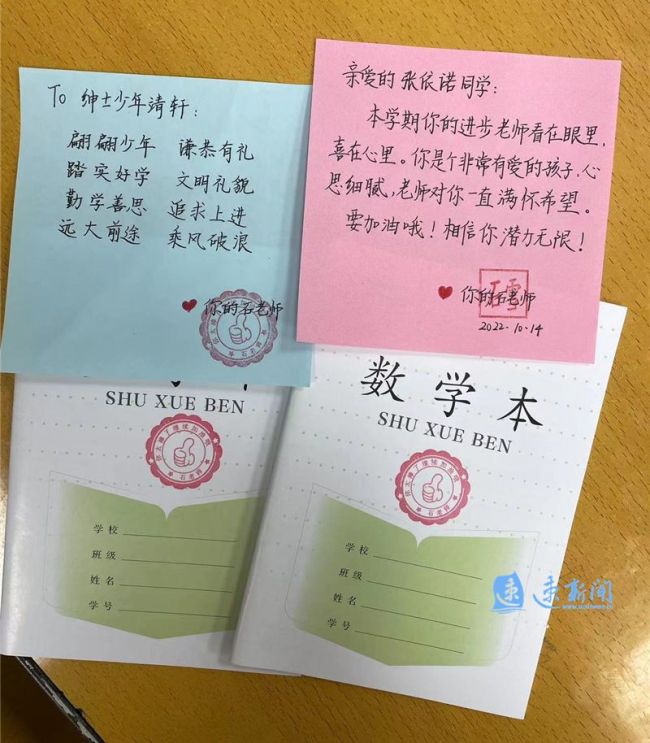 To 绅士少年清轩：
翩翩少年 谦恭有礼
踏实好学 文明礼貌
勤学善思 追求上进
远大前途 乘风破浪
你的石老师
亲爱的张依诺同学：
本学期你的进步老师看在眼里，
喜在心里。你是个非常有爱的孩子，心
思细腻，老师对你一直满怀希望。
要加油哦！相信你潜力无限！
你的石老师
2022.10.14
SHU XUE BEN
你太棒了继续加油哦
石老师
学校
班级
姓名
学号
数学本
SHU XUE BEN
你太棒了继续加油哦
石老师
学校
班级
姓名
学号
速新闻